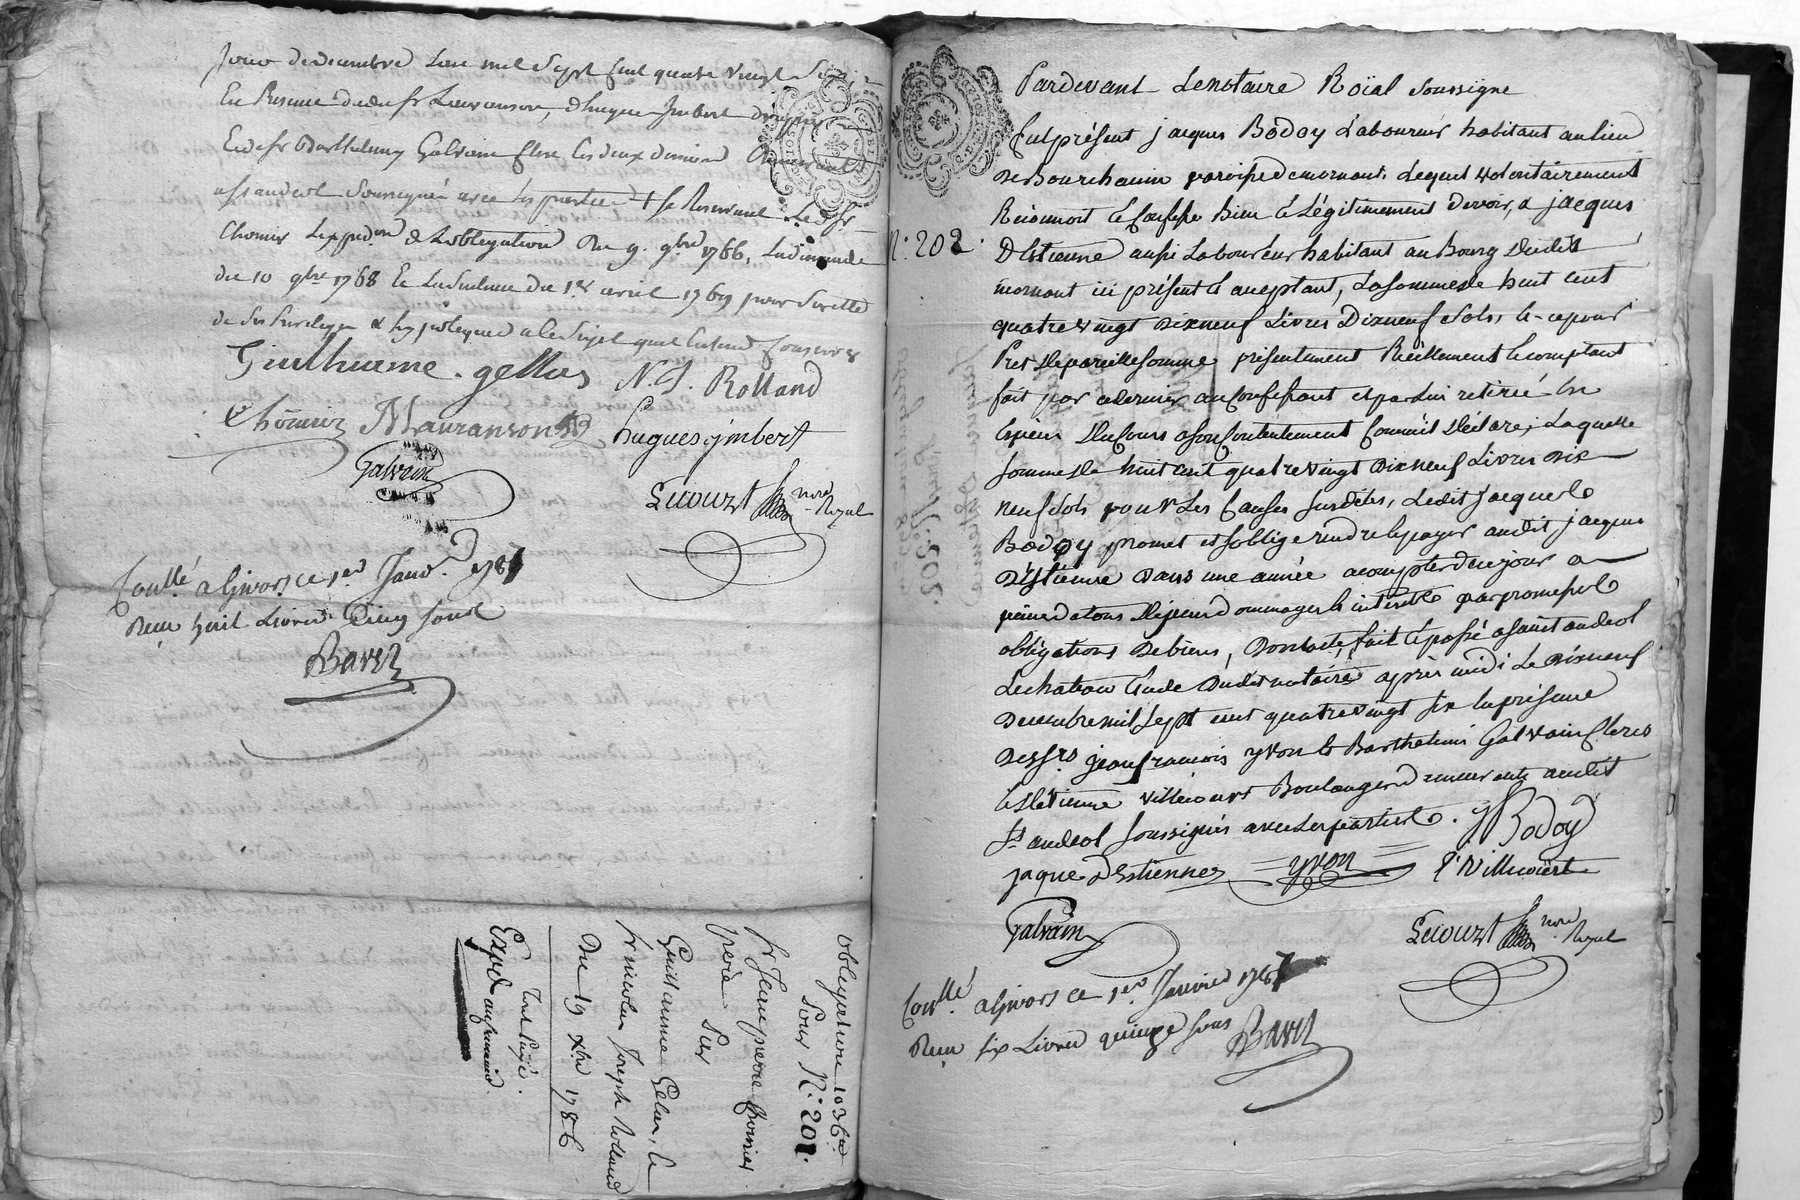 jour de decembre l'an mil sept cent quatre vingt
En Presence dudit sr Lauranson, d'hugues Imbert
Et de sr Barthelemy Galvain clerc les deux derniers
st andeol soussignés avec les parties + se Reservant Le d. sr
Chomier L'expedon de L'obligation du 9. 9bre 1766, La demande
du 10 9bre 1768 Et La Sentence du 1er avril 1769 pour Surette
de Ses Privileges & hypotheques a le Sujet quil Entend Conserver
Guilhiaume . gellas N. J. Rolland
Chomier MLauranson Hugues jmbert
Galvain
Lecourt nore Royal
Conllé a Givors ce 1er Janv. 1787
Reçu huit Livres Cinq sous
Barez
obligation 1036
Pour N.º 201.
sr Jean pierre Chomier
père Sur
Guillaume Gelas, &
sr nicolas Joseph Rolland
Du 19 Xbre 1786
Tout Payé.
Expé au premier.
N.º 202.
Pardevant Le notaire Roïal soussigné
fut présent jacques Bodoy Laboureur habitant au lieu
de Bourchanin paroisse de mornant. Lequel volontairement
Reconnoit & Confesse bien & Légitimement devoir, a jacques
Destienne aussi Laboureur habitant au Bourg dudit
mornant ici présent & acceptant, La somme de huit cent
quatre vingt dix neuf Livres Dix neuf sols, & ce pour
Pret de pareille somme présentement Réellement & comptant
fait par ce dernier au Confessant et par lui retirée En
Especes du Cours a son Contentement Comme il déclare; Laquelle
somme de huit cent quatre vingt dix neuf Livres dix
neuf sols pour Les Causes susdites, Ledit jacques
Bodoy promet et s'oblige rendre & payer audit jacques
Déstienne dans une année a compter de ce jour a
peine de tous dépens dommages & intérêts par promesse
obligations de biens, Dont acte, fait & passé a saint andeol
Le chateau Etude dudit notaire après midi Le dix neuf
decembre mil sept cent quatre vingt six En présence
des srs jean francois yvon & Barthelemi Galvain Clercs
& d'Etienne villecourt Boulanger demeurants audit
st andeol soussignés avec Les parties. JBodoy
jaque destienne yvon E Villecourt
Galvain
Lecourt nore Royal
Conllé a Givors ce 1er Janvier 1787
Reçu six Livres quinze sous
Barez